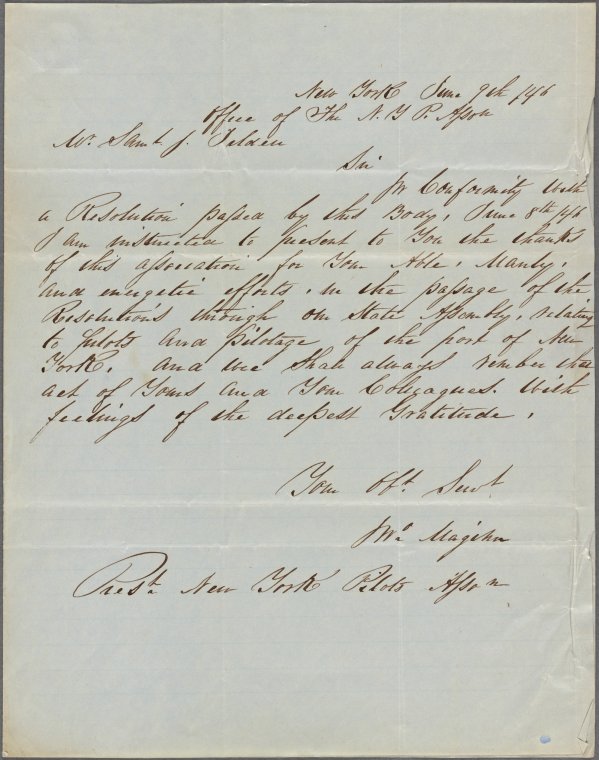 New York June 9th /46
Office of The N. Y P. Asson
Mr. Saml J. Tilden
Sir
In Conformity With
a Resolution passed by this Body, June 8th /46
I am instructed to present to You the thanks
of this association for Your Able, Manly,
and energetic efforts, in the passage of the
Resolution's through our State Assembly, relating
to pilots and pilotage of the port of New
York. and we Shall always rember this
act of Yours and Your Colleagues. With
feelings of the deepest Gratitude,
Your Obt. Servt
Jno Maginn
Prest. New York Pilots Asson